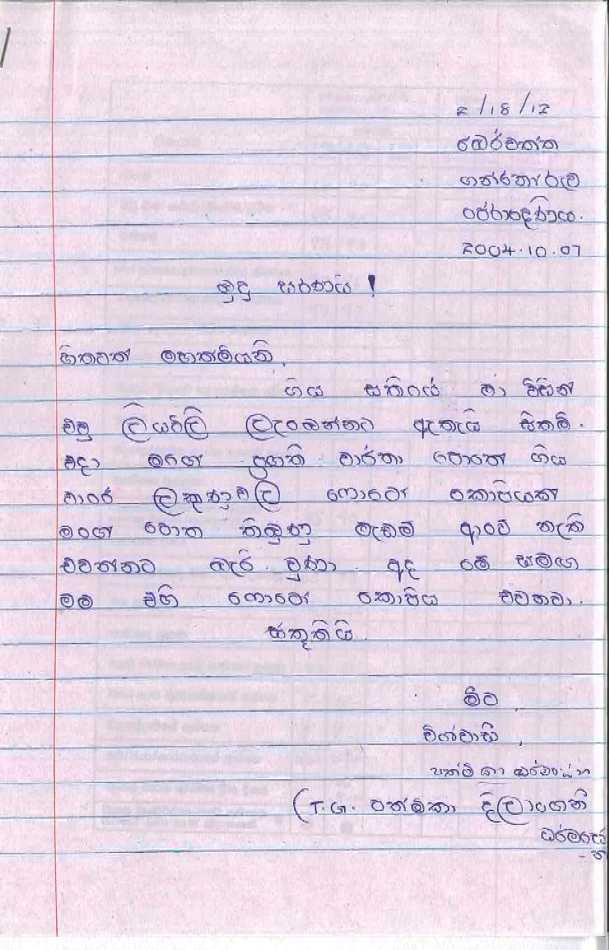 2/18/12
බෝවත්ත
ගන්නොරුව
පේරාදෙණිය.
2004.10.07
බුදු සරණයි !
හිතවත් මහත්මියනි,
ගිය සතියේ මා විසින්
එවූ ලියවිලි ලැබෙන්නට ඇතැයි සිතමි.
එදා මගේ ප්‍රගති වාර්තා පොතේ ගිය
වාරේ ලකුණුවල ෆොටෝ කොපියක්
මගෙ පොත තිබුණු මැඩම් ආවෙ නැති
එවන්නට බැරි වුණා. අද මේ සමඟ
මම එහි ෆොටෝ කොපිය එවනවා.
ස්තූතියි.
මීට,
විශ්වාසී,
(T.G. පත්මිකා දිල්හානි
ධර්මසේ
- න